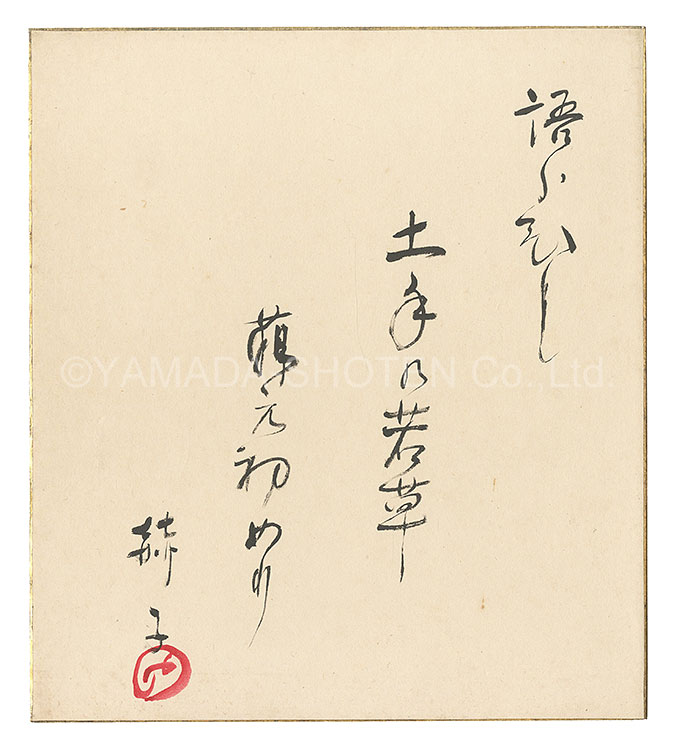 語らひし
土手の若草
萌え初めり
©YAMADA SHOTEN Co.,Ltd.